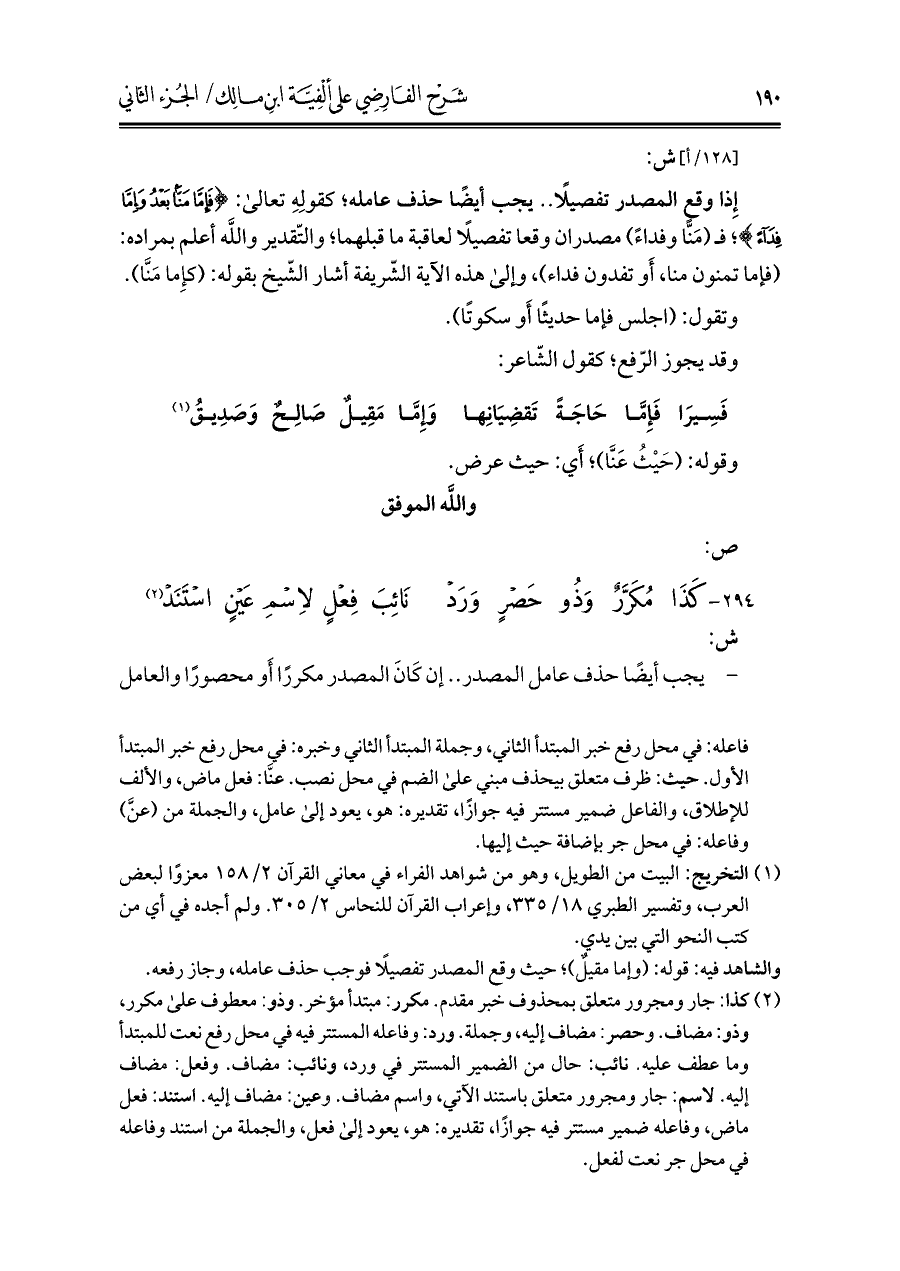 ١٩٠ شَرْح الفَارِضِي على ألْفِيَّة ابن مَالِك/ الجُزء الثاني
[١٢٨/ أ] ش:
إِذا وقع المصدر تفصيلًا.. يجب أيضًا حذف عامله؛ كقولِهِ تعالىٰ: ﴿فَإِمَّا مَنًّا بَعْدُ وَإِمَّا
فِدَآءً﴾؛ فـ (مَنًّا وفداءً) مصدران وقعا تفصيلًا لعاقبة ما قبلهما؛ والتّقدير واللَّه أعلم بمراده:
(فإما تمنون منا، أَو تفدون فداء)، وإلىٰ هذه الآية الشّريفة أشار الشّيخ بقوله: (كإِما مَنَّا).
وتقول: (اجلس فإما حديثًا أَو سكوتًا).
وقد يجوز الرّفع؛ كقول الشّاعر:
فَسِـيرَا فَإِمَّـا حَاجَـةً تَقضِيَانِهـا وَإِمَّـا مَقِيـلٌ صَالِـحٌ وَصَدِيـقُ(١)
وقوله: (حَيْثُ عَنَّا)؛ أَي: حيث عرض.
واللَّه الموفق
ص:
٢٩٤- كَذَا مُكَرَّرٌ وَذُو حَصْرٍ وَرَدْ نَائِبَ فِعْلٍ لاِسْمِ عَيْنٍ اسْتَنَدْ(٢)
ش:
- يجب أيضًا حذف عامل المصدر.. إِن كَانَ المصدر مكررًا أَو محصورًا والعامل
فاعله: في محل رفع خبر المبتدأ الثاني، وجملة المبتدأ الثاني وخبره: في محل رفع خبر المبتدأ
الأول. حيث: ظرف متعلق بيحذف مبني علىٰ الضم في محل نصب. عنَّا: فعل ماض، والألف
للإطلاق، والفاعل ضمير مستتر فيه جوازًا، تقديره: هو، يعود إلىٰ عامل، والجملة من (عنَّ)
وفاعله: في محل جر بإضافة حيث إليها.
(١) التخريج: البيت من الطويل، وهو من شواهد الفراء في معاني القرآن ٢/ ١٥٨ معزوًا لبعض
العرب، وتفسير الطبري ١٨/ ٣٣٥، وإعراب القرآن للنحاس ٢/ ٣٠٥. ولم أجده في أي من
كتب النحو التي بين يدي.
والشاهد فيه: قوله: (وإما مقيلٌ)؛ حيث وقع المصدر تفصيلًا فوجب حذف عامله، وجاز رفعه.
(٢) كذا: جار ومجرور متعلق بمحذوف خبر مقدم. مكرر: مبتدأ مؤخر. وذو: معطوف علىٰ مكرر،
وذو: مضاف. وحصر: مضاف إليه، وجملة. ورد: وفاعله المستتر فيه في محل رفع نعت للمبتدأ
وما عطف عليه. نائب: حال من الضمير المستتر في ورد، ونائب: مضاف. وفعل: مضاف
إليه. لاسم: جار ومجرور متعلق باستند الآتي، واسم مضاف. وعين: مضاف إليه. استند: فعل
ماض، وفاعله ضمير مستتر فيه جوازًا، تقديره: هو، يعود إلىٰ فعل، والجملة من استند وفاعله
في محل جر نعت لفعل.